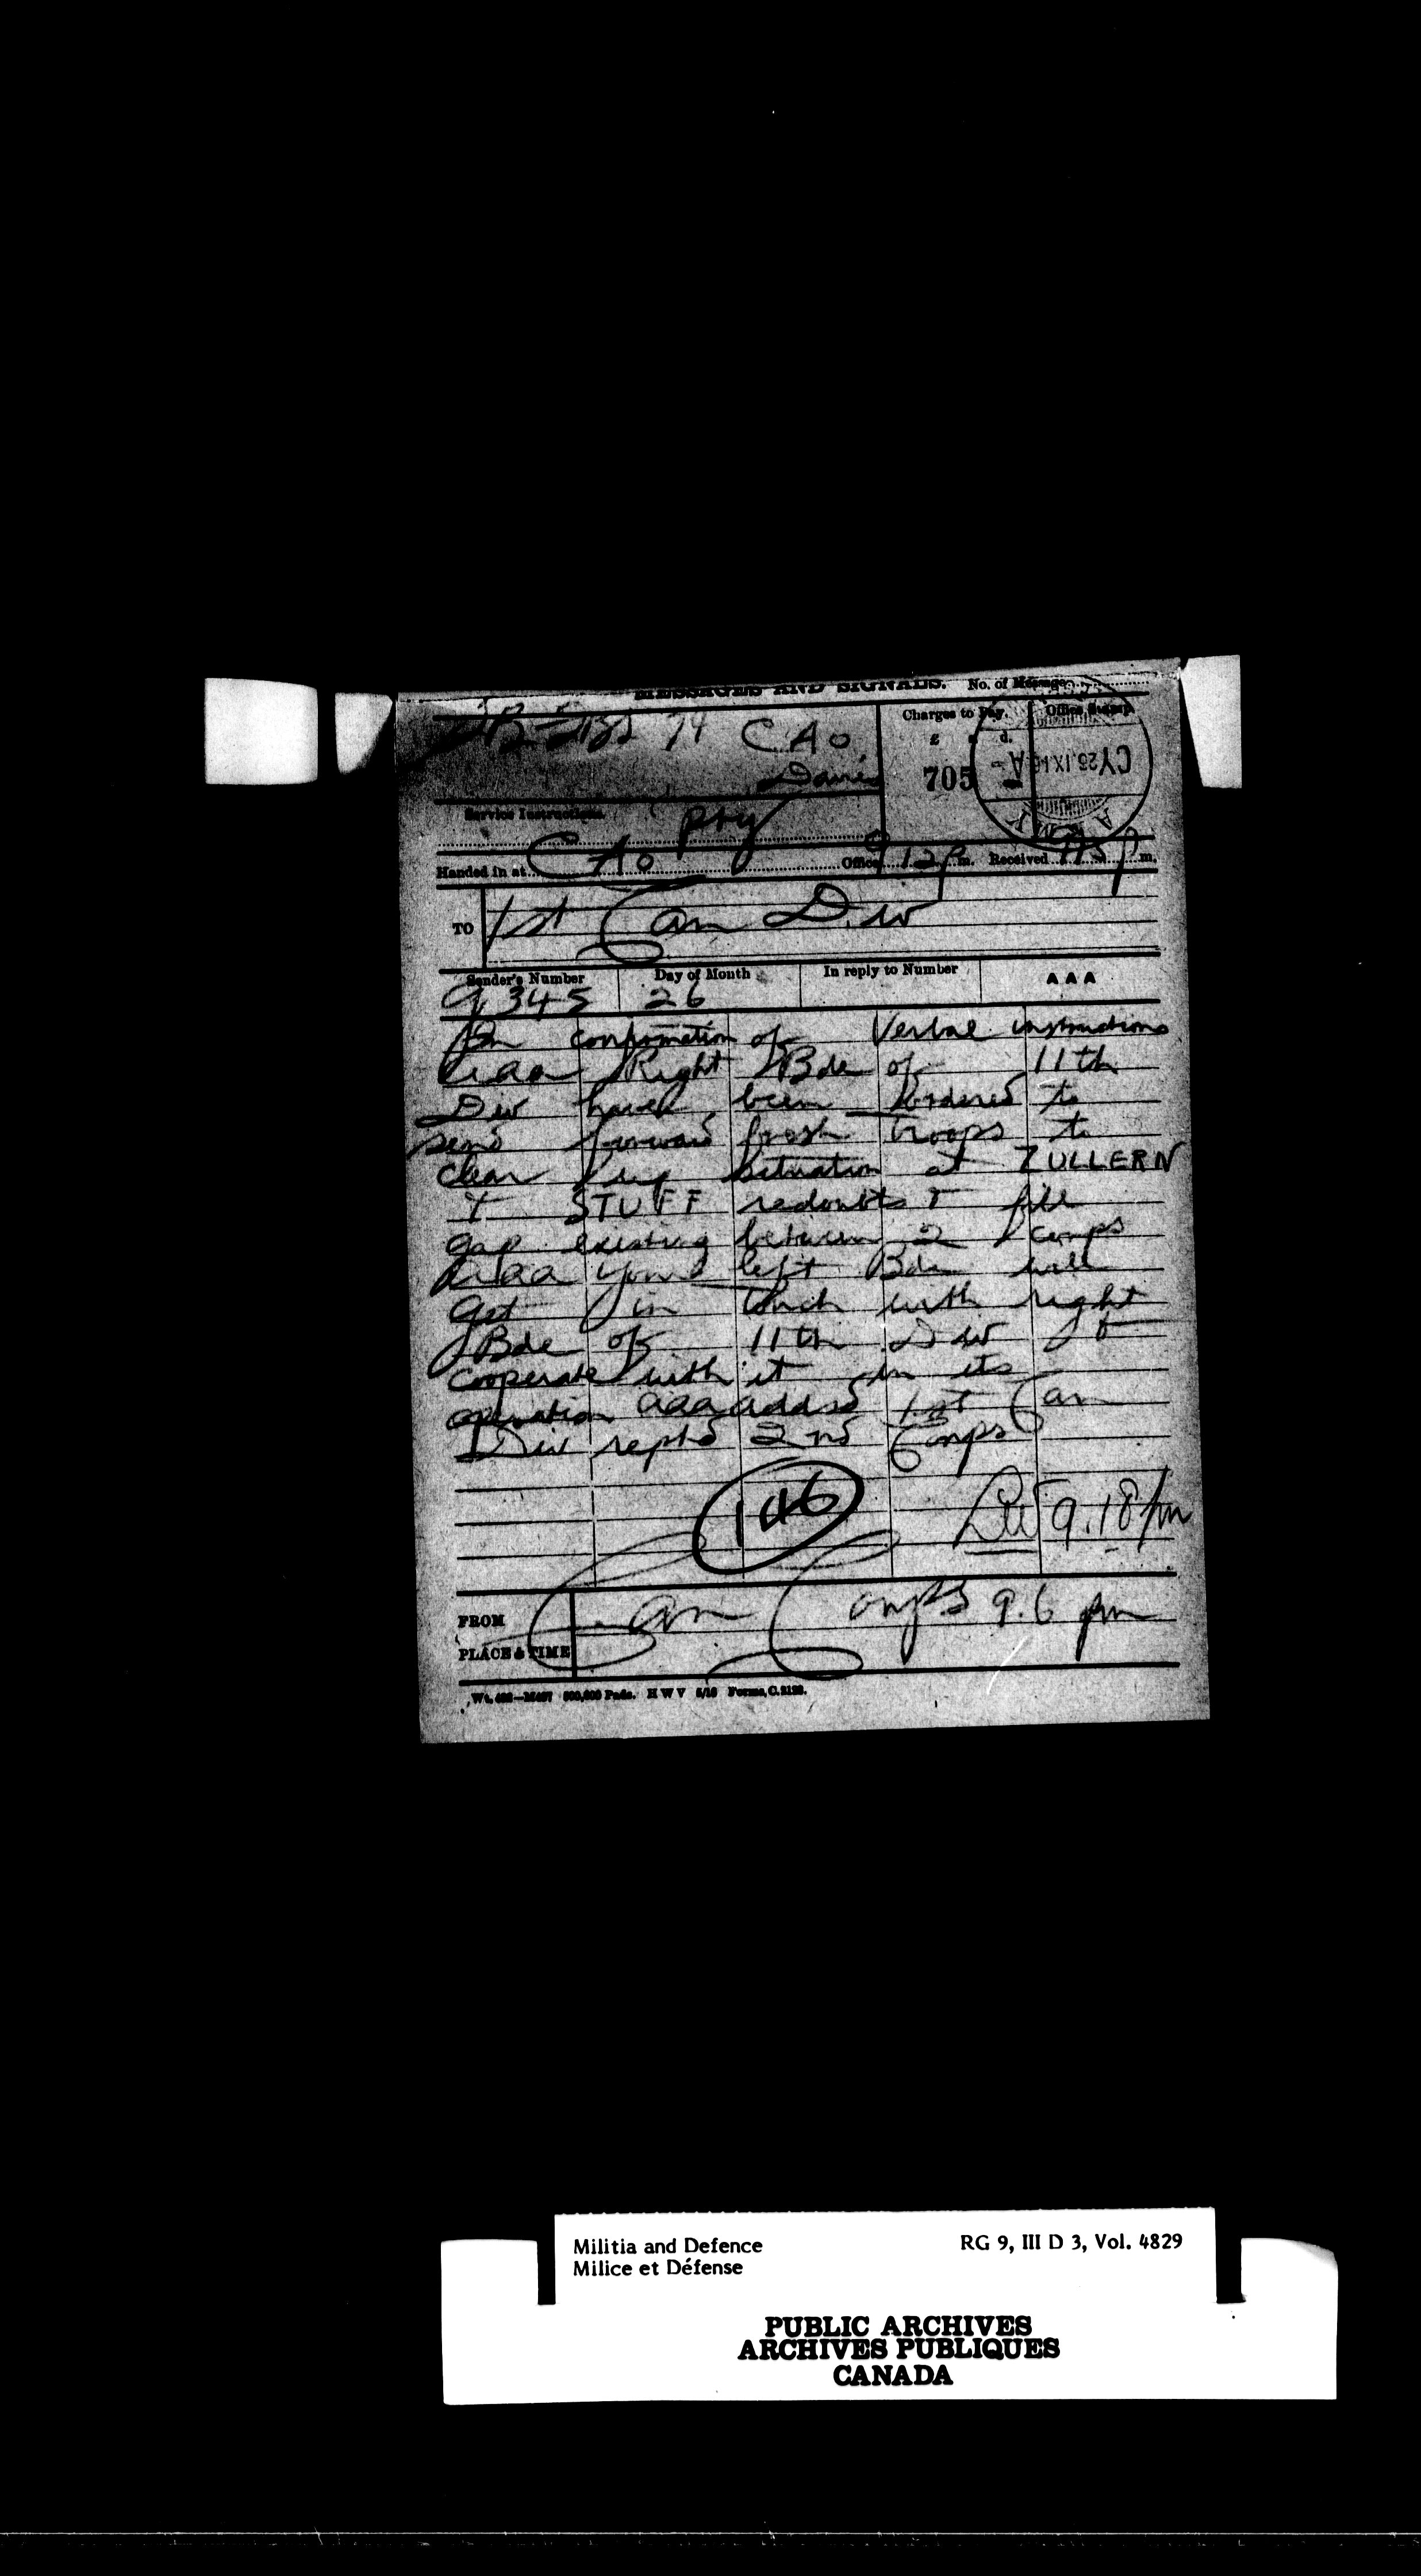 MESSAGES AND SIGNALS. No. of Message
74 CAO
Davis
Charges to Pay. Office Stamp.
£ s d.
705
CY 26.IX.16 A
ARMY
Service Instructions
Pty
Handed in at CAO Office 9 12 p m. Received 9 15 p m.
TO 1st Can Div
Sender's Number Day of Month In reply to Number AAA
G 345 26
In confirmation of Verbal instructions
aaa Right Bde of 11th
Div have been ordered to
send forward fresh troops to
clear up situation at ZULLERN
& STUFF redoubts & fill
gap existing between 2 Corps
aaa your left Bde will
get in touch with right
Bde of 11th Div &
cooperate with it in its
operation aaa addsd 1st Can
Div reptd 2nd Corps
146
9.18 pm
FROM Can Corps 9.6 pm
PLACE & TIME
500,000 Pads. H W V 5/16 Forms, C.2123.
Militia and Defence RG 9, III D 3, Vol. 4829
Milice et Défense
PUBLIC ARCHIVES
ARCHIVES PUBLIQUES
CANADA